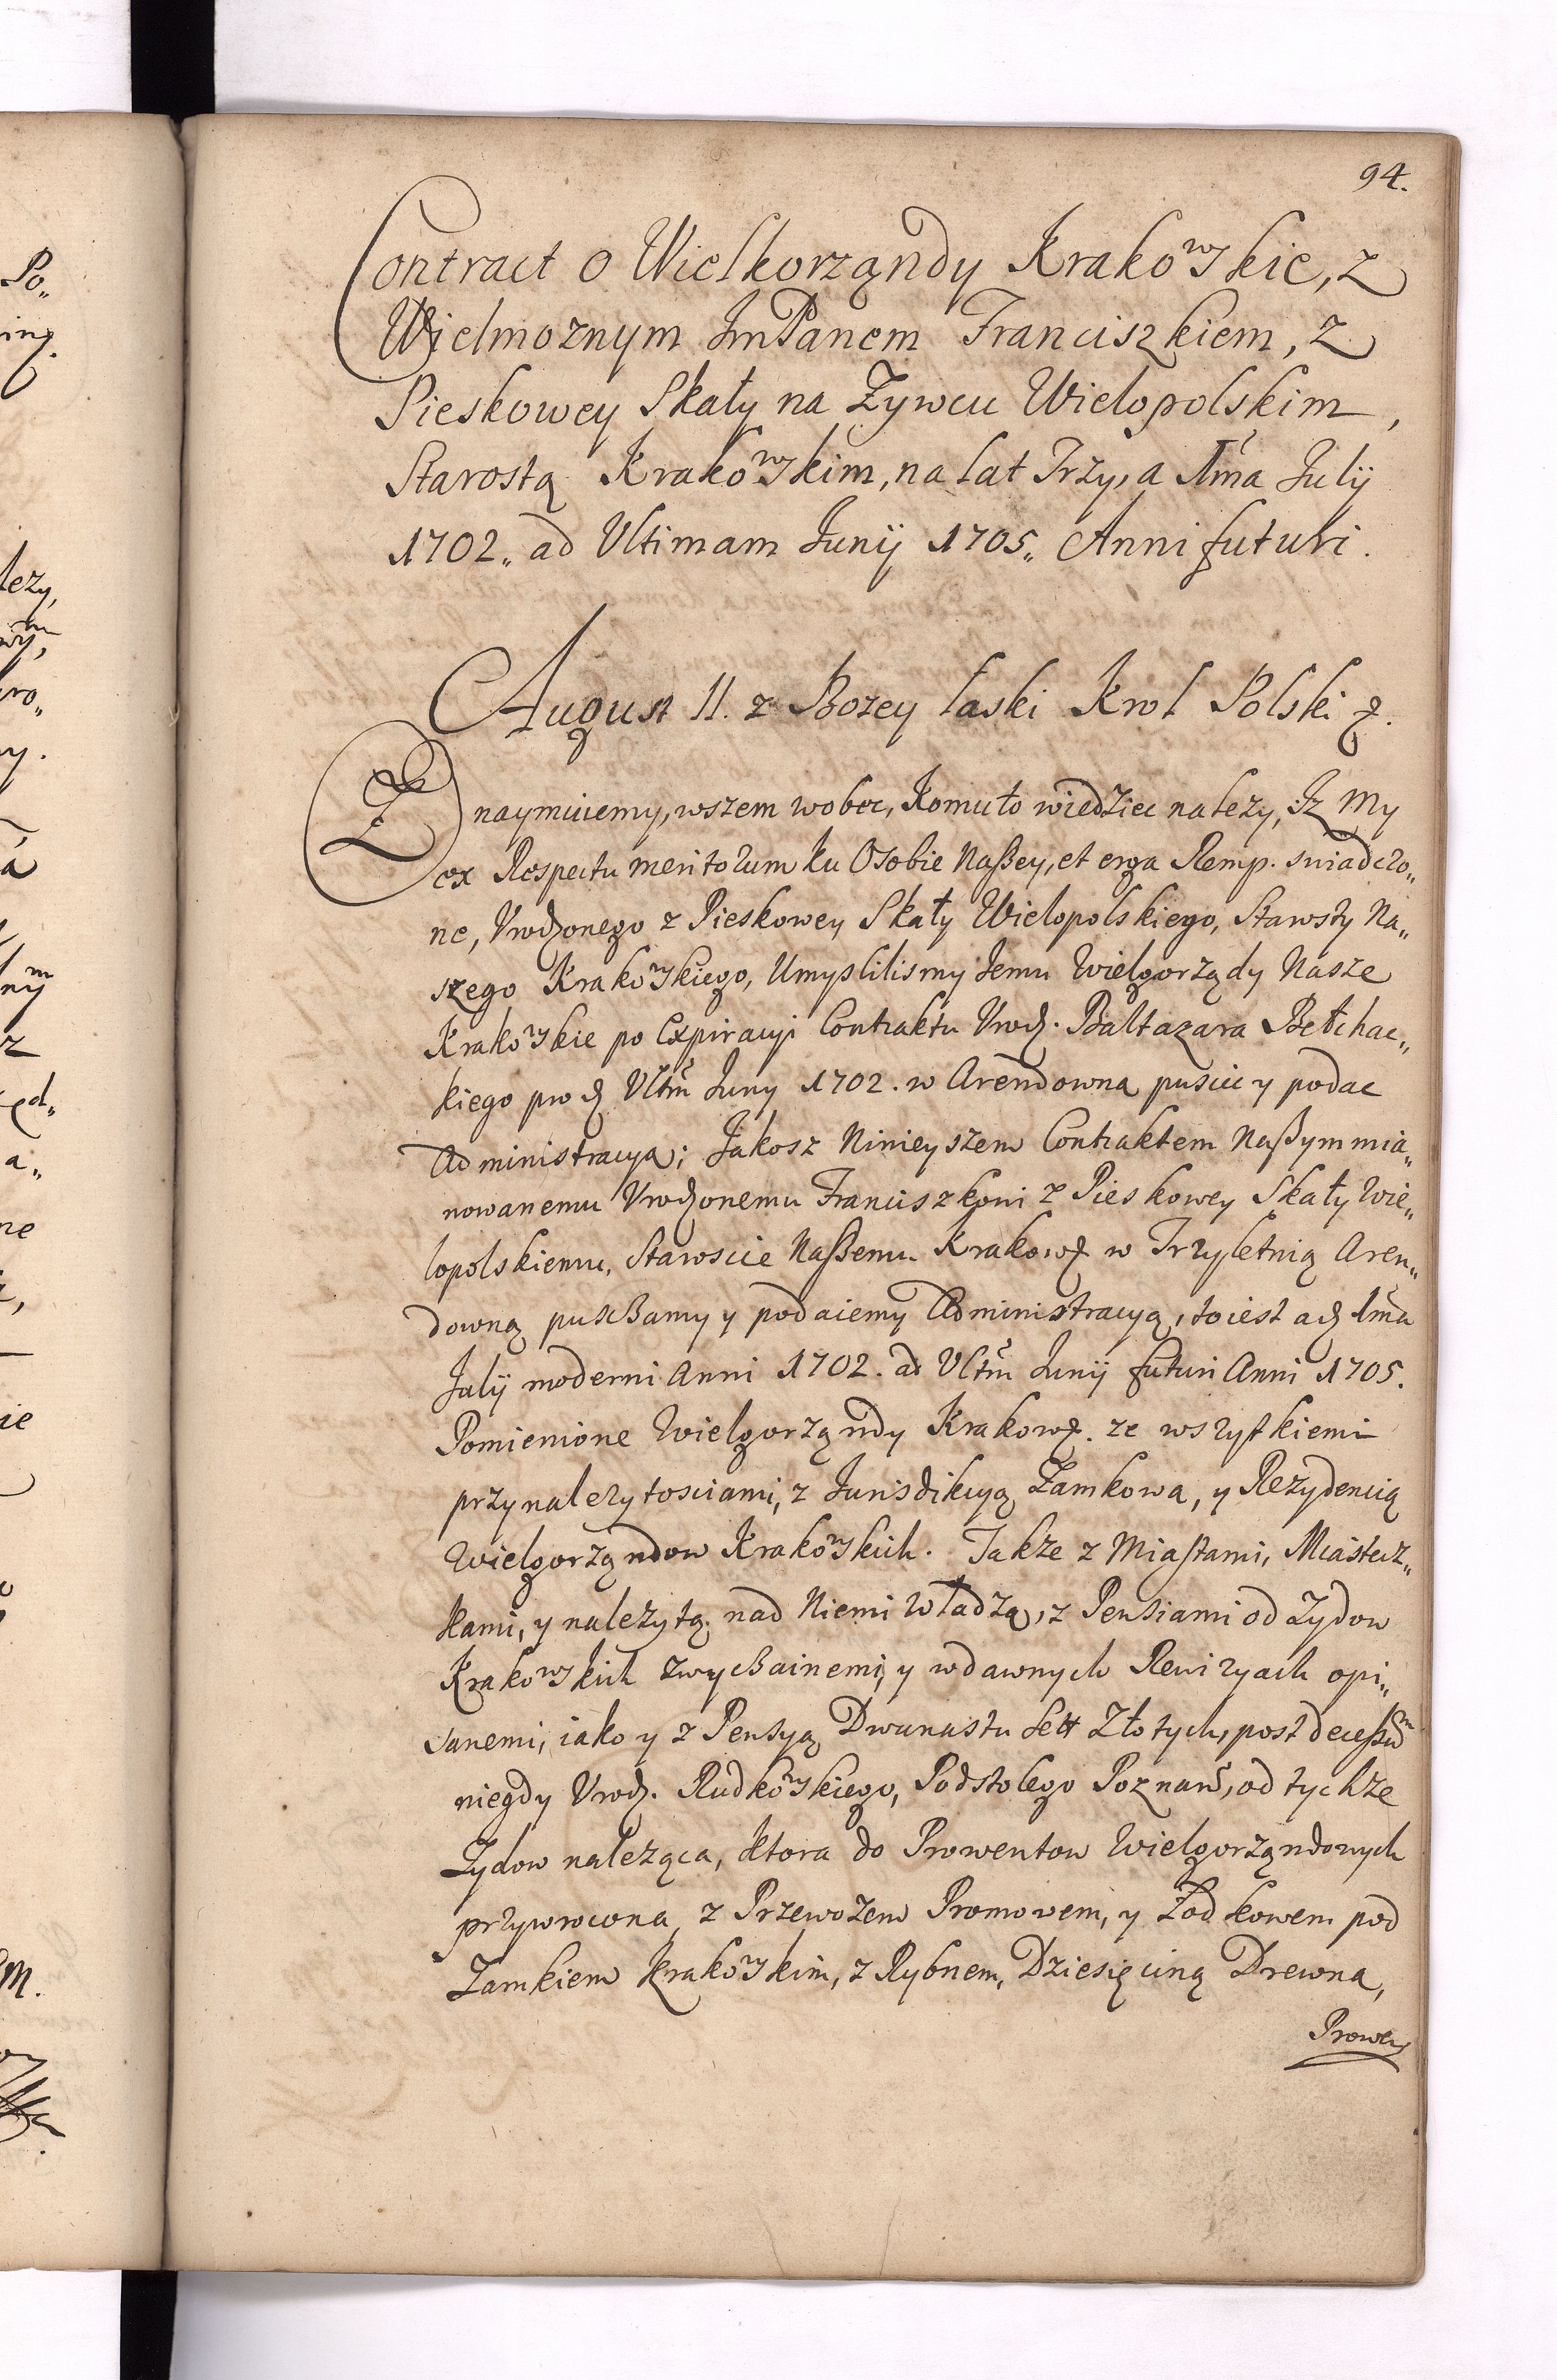 94.
Contract o Wielkorząndy Krakowskie, z
Wielmoznym JmPanem Franciszkiem, z
Pieskowey Skały na Zywcu Wielopolskim,
Starostą Krakowskim, na lat Trzy, a 1ma Julij
1702. ad Ultimam Junij 1705. Anni futuri.
August II. z Bozey łaski Krol Polski etc.
Znaymuiemy, wszem wobec, Komu to wiedziec nalezy, Iz My
ex Respectu meritorum ku Osobie Naszey, et erga Remp. sniadczo„
ne, Urodzonego z Pieskowey Skały Wielopolskiego, Starosty Na„
szego Krakowskiego, Umyslilismy Jemu Wielgorządy Nasze
Krakowskie po Expiracyi Contraktu Urodz. Baltazara Bełchac„
kiego pro d Ultm Juny 1702. w Arendowną puscic y podac
Administracyą; Jakosz Ninieyszem Contraktem Naszym mia„
nowanemu Urodzonemu Franciszkowi z Pieskowey Skały Wie„
lopolskiemu, Staroscie Naszemu Krakow. w Trzyletnią Aren„
downą puszczamy y podaiemy Administracyą, to iest ad 1ma
Julij moderni Anni 1702. ad Ultm Junij futuri Anni 1705.
Pomienione Wielgorząndy Krakow. ze wszytkiemi
przynalezytosciami, z Jurisdikcyą Zamkowa, y Rezydencią
Wielgorząndow Krakowskich. Takze z Miastami, Miastecz„
kami, y nalezytą nad Niemi Władzą, z Pensiami od Zydow
Krakowskich zwyczainemi, y wdawnych Rewizyach opi„
sanemi, iako y z Pensyą Dwunastu Sett Złotych, post decessum
niegdy Urodz. Rudkowskiego, Podstolego Poznan, od tychze
Zydow nalezące, ktora do Prowentow Wielgorząndowych
przywrocona, z Przewozem Promowem, y Łodkowem pod
Zamkiem Krakowskim, z Rybnem, Dziesięciną Drewna,
Prowen